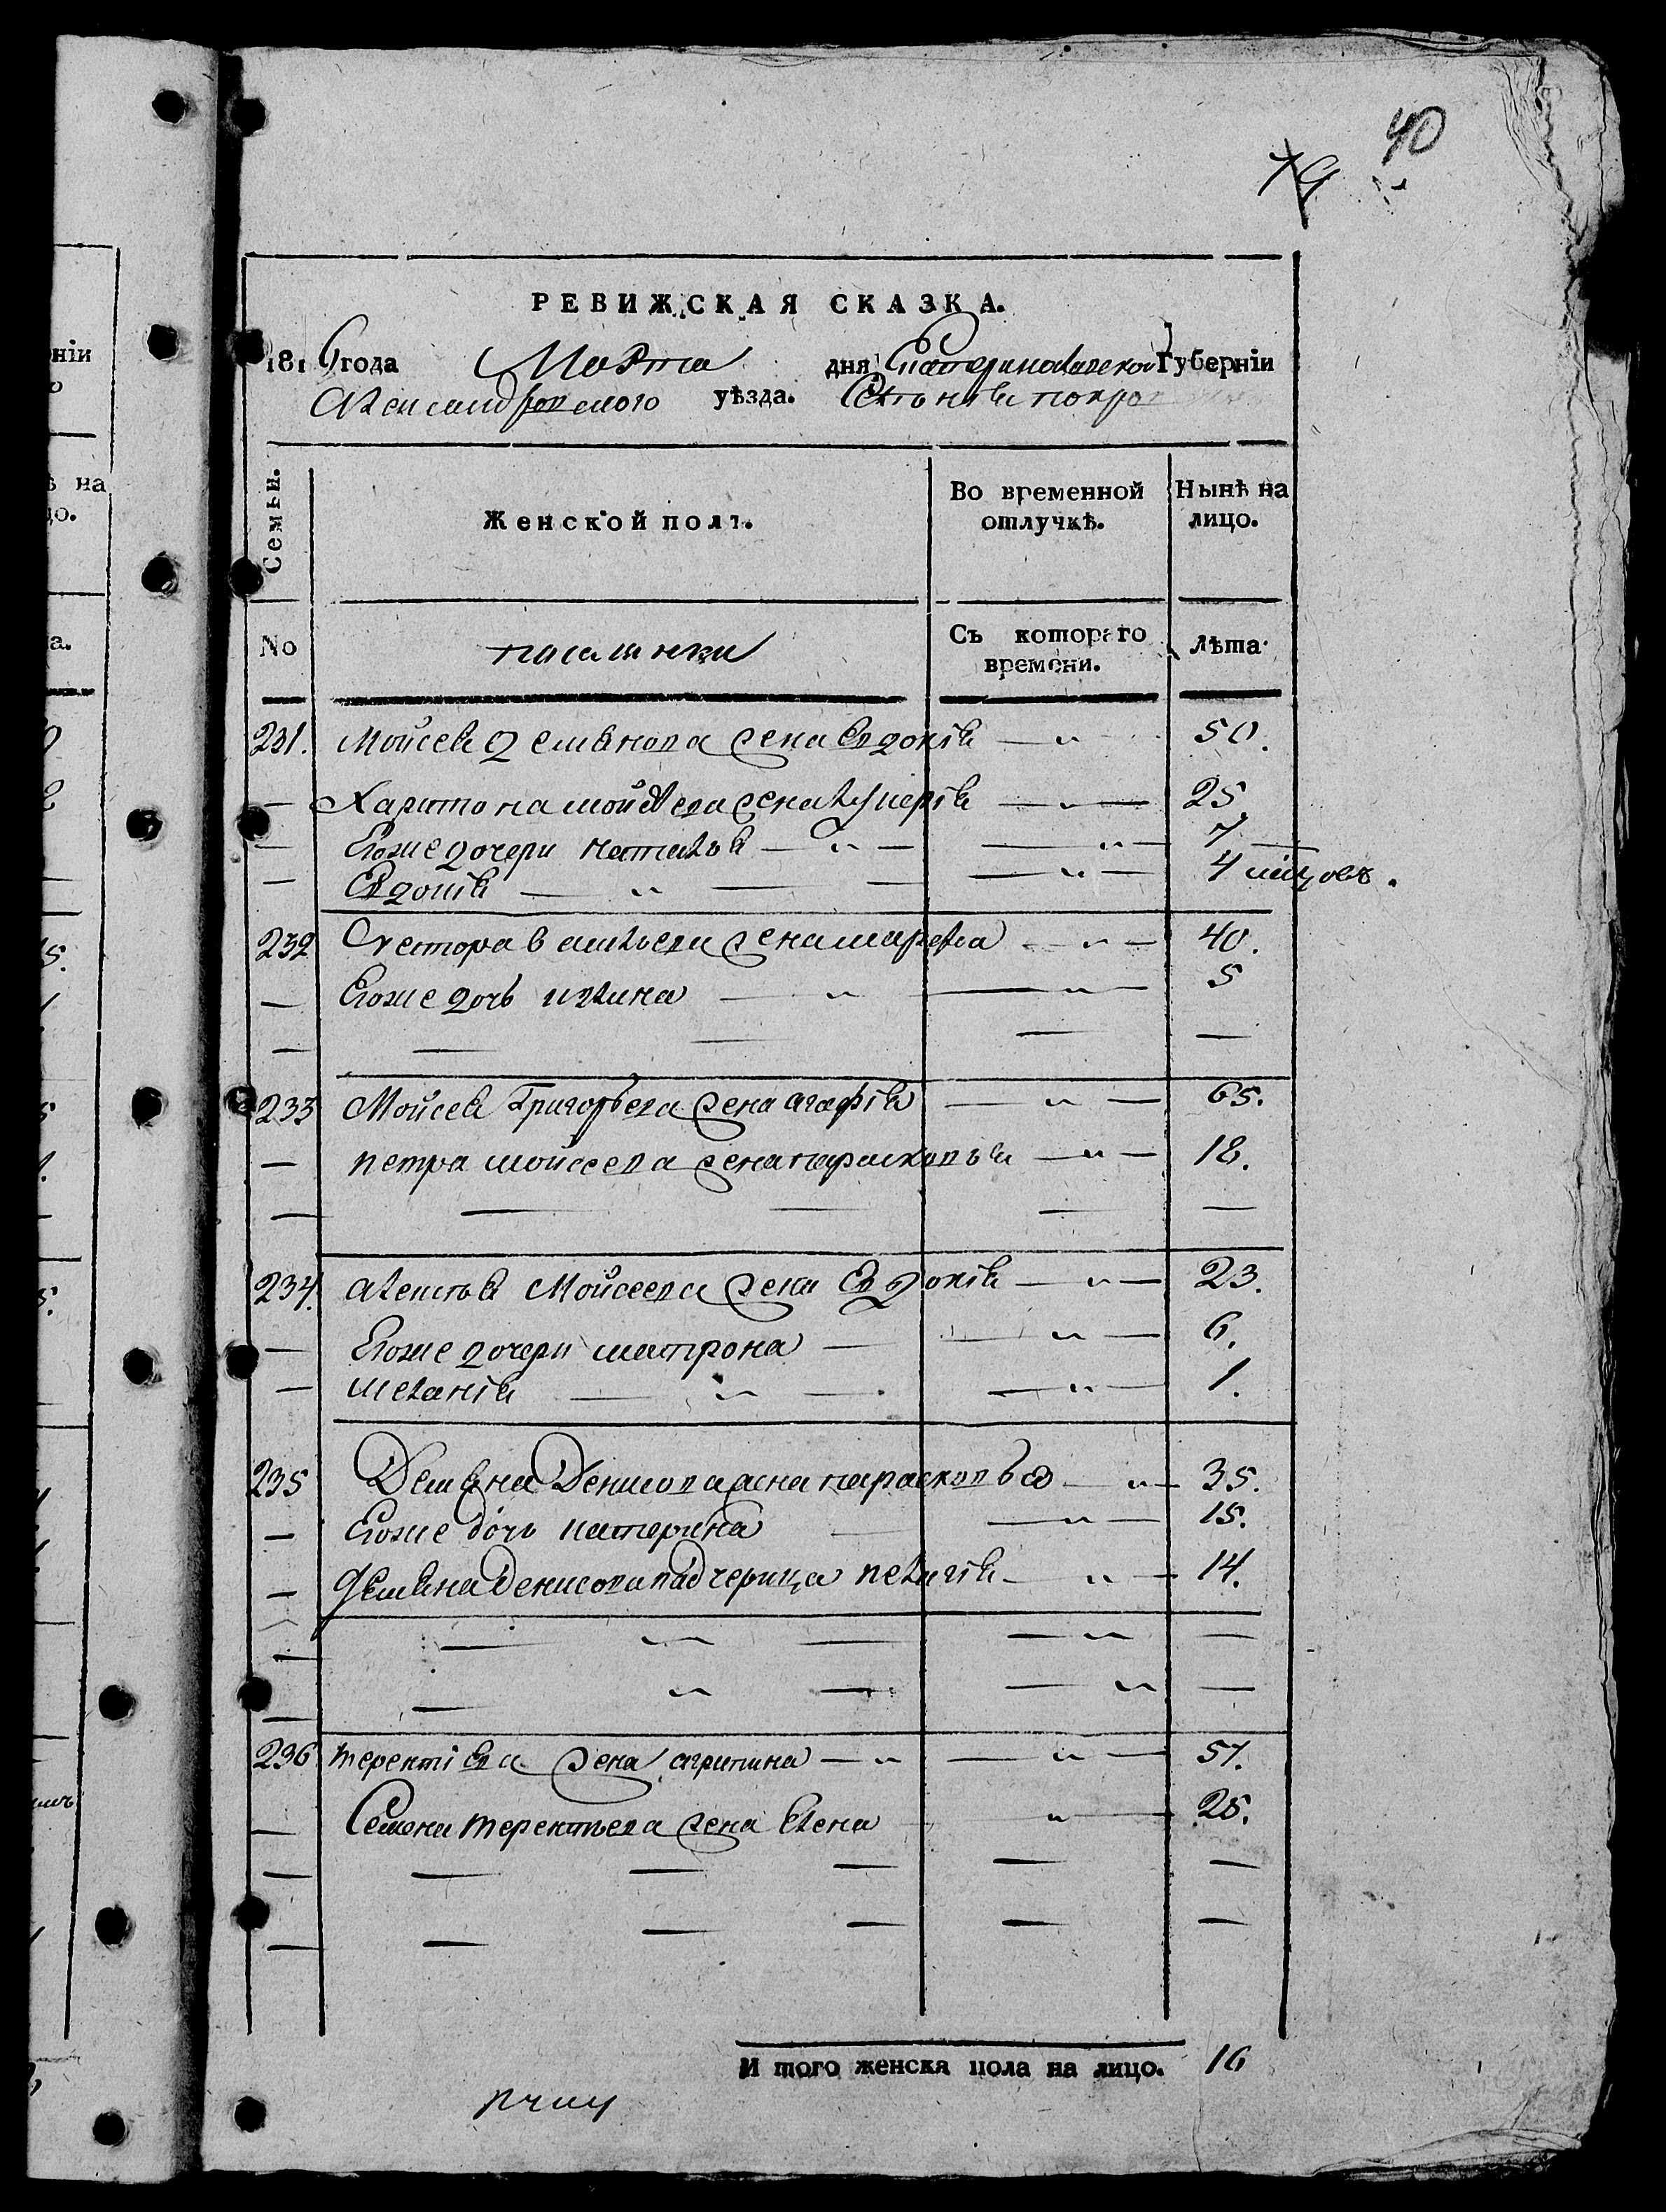 40
79
РЕВИЖСКАЯ СКАЗКА.
1816 года Марта дня Екатеринославской Губерніи
Александровского уѣзда. Селенія покров
Семьи. Женской полъ. Во временной отлучкѣ. Нынѣ на лицо.
No Съ котораго времени. лѣта
231. Мойсея Демянова жена Евдокія — „ 50.
— Харитона мойсеева жена лукерія — „ — 25
— Егоже дочери наталья — „ — — „ — 7
— Евдокія — „ — — — „ — 4 мѣсяцовъ.
232 Нестора василъева жена марфа — „ — 40.
— Егоже дочь ирина — „ — „ — 5
— — — — —
233 Мойсея Григорьева жена агафія — „ — 65.
— петра мойсеева жена парасковъя — „ — 18.
— — — — —
234. алексѣя Мойсеева жена Евдокія — „ — 23.
— Егоже дочери матрона — — „ — 6.
— меланія — „ — — „ — 1.
235 Демяна Денисова жена парасковъя — „ — 35.
— Егоже дочь катерина — „ — 15.
— Демяна Денисова падчерица пелагія — „ — 14.
— — „ — — „ — —
— — „ — — „ —
236 терентіева жена агрипина — „ — „ — 57.
— Семена терентьева жена Елена „ — 25.
— — — — — —
— — — — — —
И того женска пола на лицо. 16